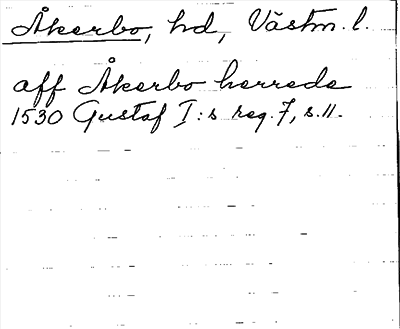 Åkerbo, hd, Västm. l.
aff Åkerbo herrede
1530 Gustaf I:s reg. 7, s. 11.